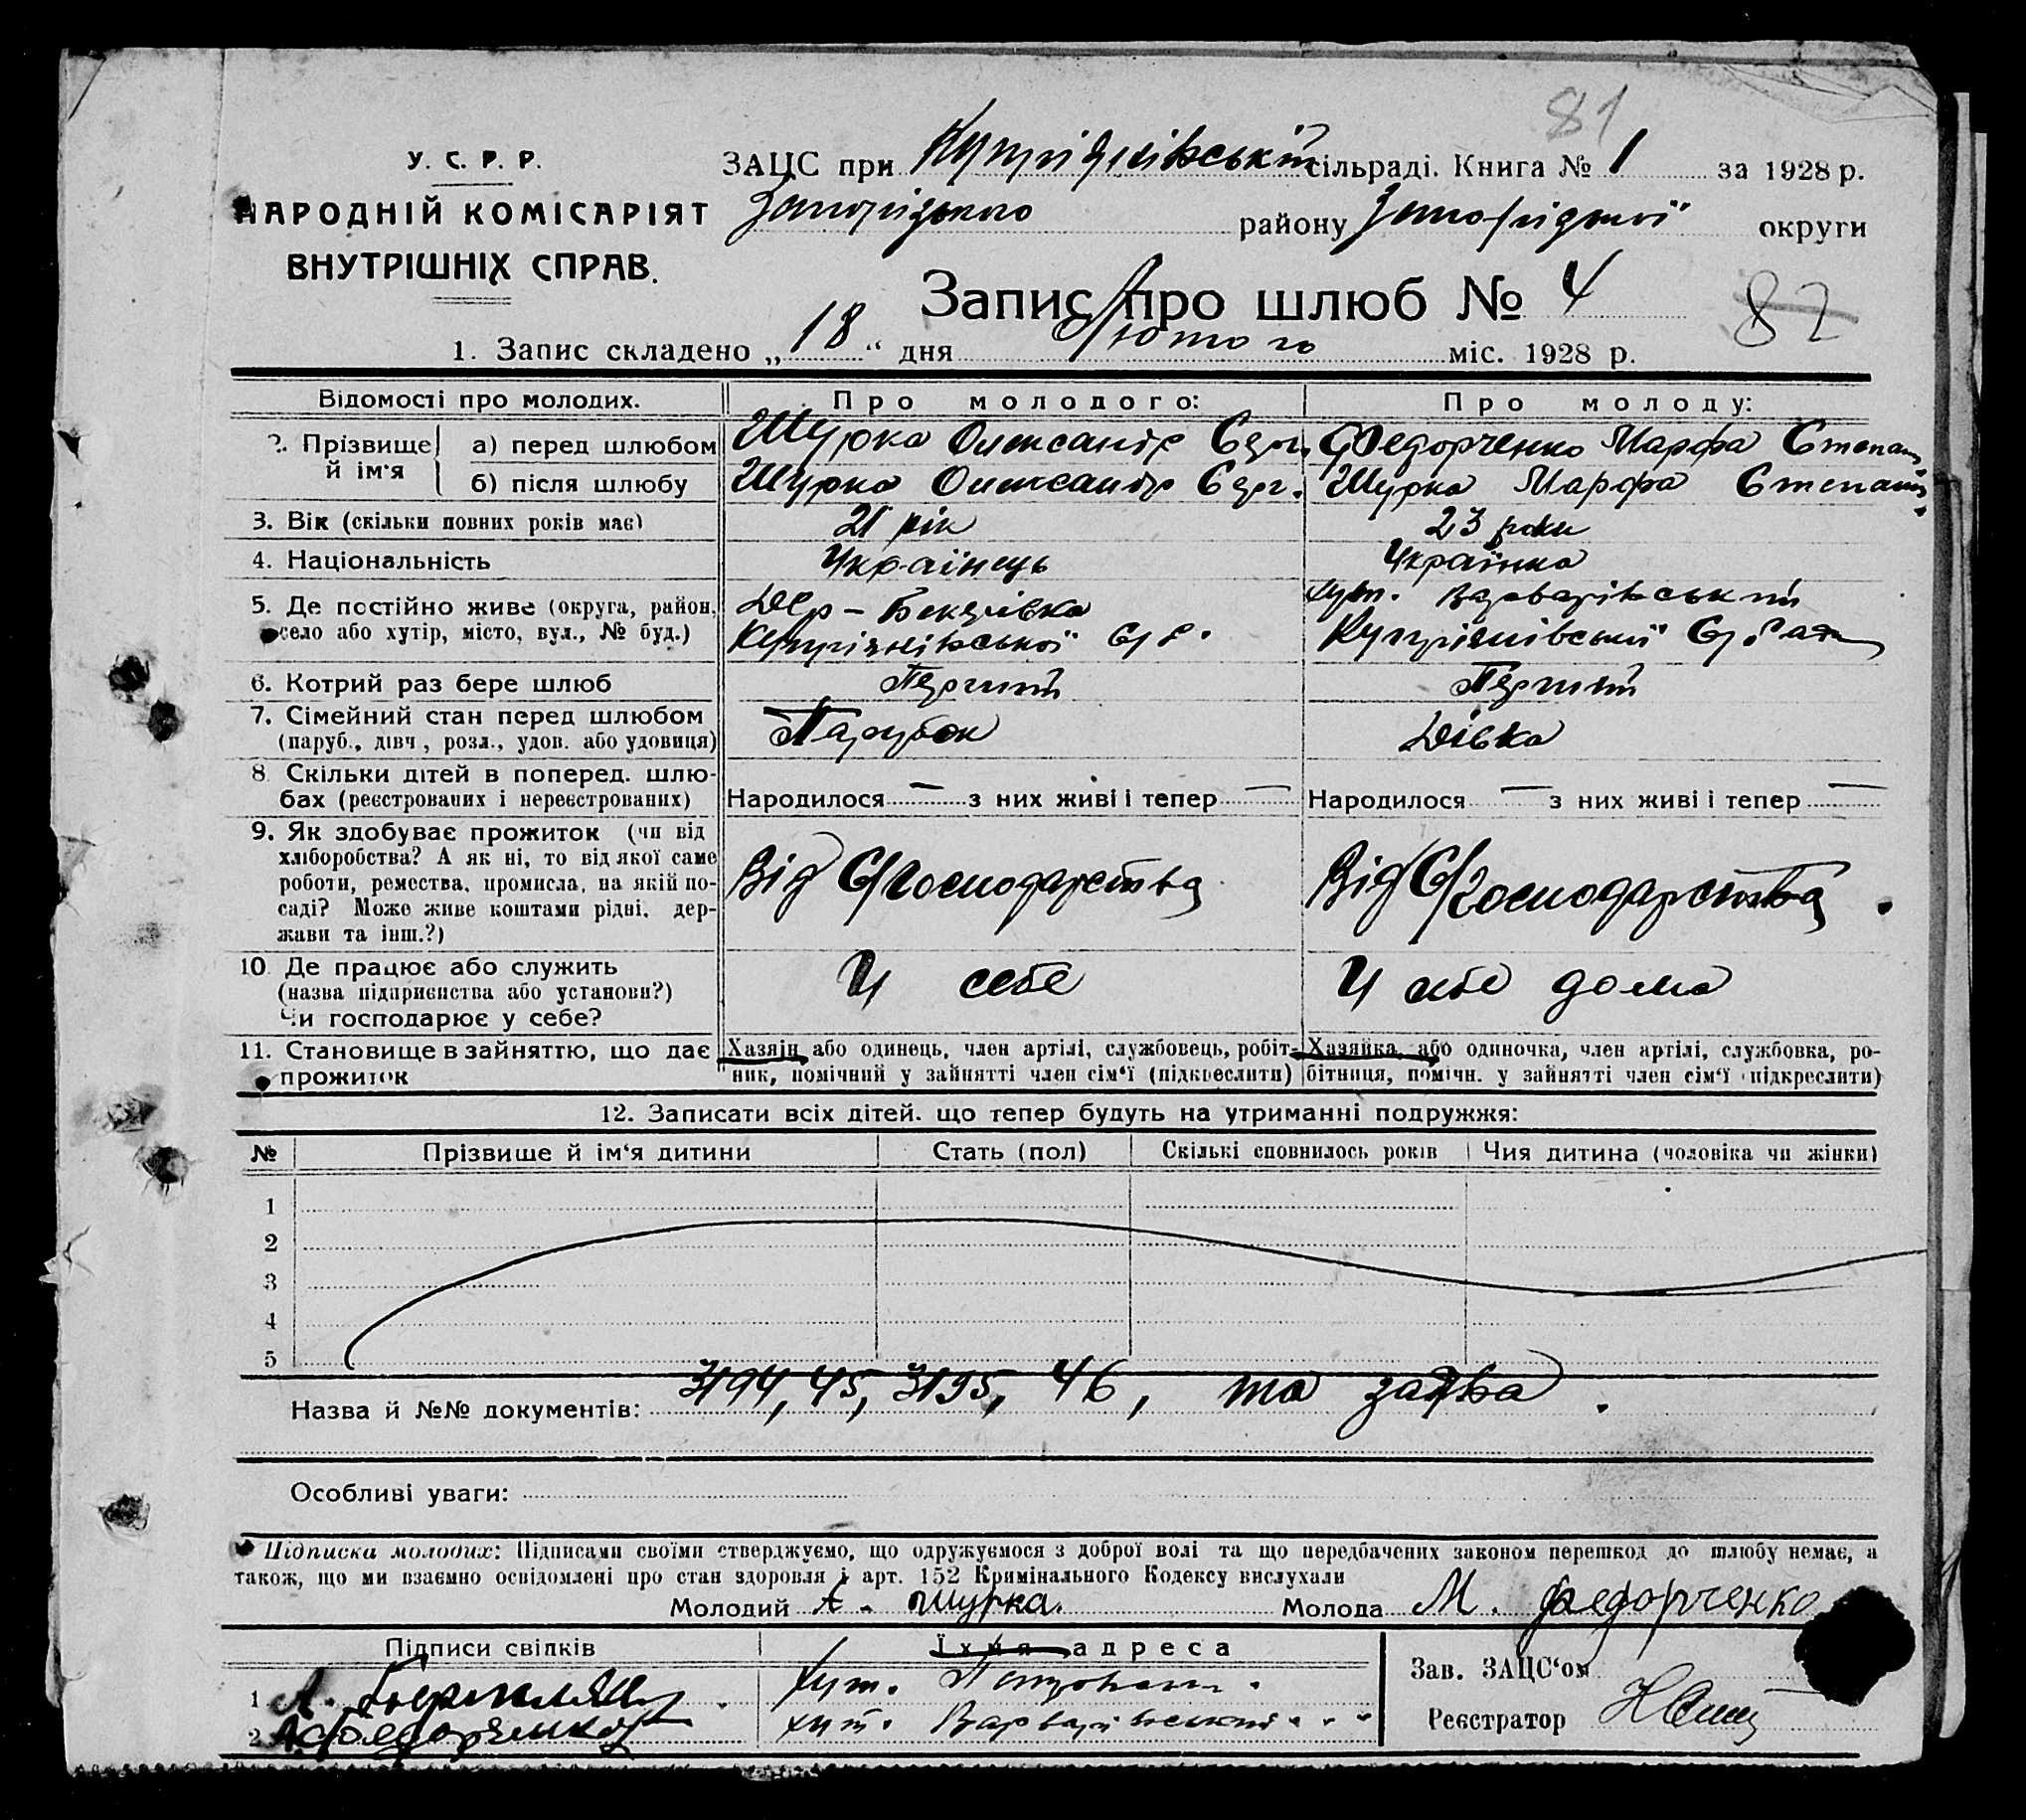 81
У. С. Р. Р.
НАРОДНІЙ КОМІСАРІЯТ
ВНУТРІШНІХ СПРАВ.
ЗАЦС при Купріянівській сільраді. Книга № 1 за 1928 р.
Запорізького району Запорізької округи
Запис про шлюб № 4
82
1. Запис складено „18“ дня Лютого міс. 1928 р.
Відомості про молодих. Про молодого: Про молоду:
2. Прізвище й ім'я
а) перед шлюбом Шурка Олександр Серг. Федорченко Марфа Степан.
б) після шлюбу Шурка Олександр Серг. Шурка Марфа Степан.
3. Вік (скільки повних років має) 21 рік 23 роки
4. Національність Українець Українка
5. Де постійно живе (округа, район, село або хутір, місто, вул., № буд.)
Дер – Купріянівської С/Р.
хут. Варварівський Купріянівської С/Ради
6. Котрий раз бере шлюб Перший Перший
7. Сімейний стан перед шлюбом Парубок Дівка
(паруб., дівч., розл., удов. або удовиця)
8. Скільки дітей в поперед. шлю-
бах (реєстрованих і нереєстрованих) Народилося — з них живі і тепер — Народилося — з них живі і тепер —
9. Як здобуває прожиток (чи від
хліборобства? А як ні, то від якої саме
роботи, ремества, промисла, на якій по-
саді? Може живе коштами рідні, дер-
жави та інш.?)
Від С/господарства Від С/господарства.
10. Де працює або служить
(назва підприємства або установи?)
Чи господарює у себе?
У себе У себе дома
11. Становище в зайняттю, що дає
прожиток
Хазяїн або одинець, член артілі, службовець, робіт-
ник, помічний у зайнятті член сім'ї (підкреслити)
Хазяйка або одиночка, член артілі, службовка, ро-
бітниця, помічн. у зайнятті член сім'ї (підкреслити)
12. Записати всіх дітей, що тепер будуть на утриманні подружжя:
№ Прізвище й ім'я дитини Стать (пол) Скількі сповнилось років Чия дитина (чоловіка чи жінки)
1
2
3
4
5
Назва й №№ документів: 3194, 45, 3195, 46, та заява.
Особливі уваги:
Підписка молодих: Підписами своїми стверджуємо, що одружуємося з доброї волі та що передбачених законом перешкод до шлюбу немає, а
також, що ми взаємно освідомлені про стан здоровля і арт. 152 Кримінального Кодексу вислухали
Молодий А. Шурка. Молода М. Федорченко
Підписи свідків Їхня адреса
1 А. хут.
2 А Федорченко хут. Варварівський
Зав. ЗАЦС'ом
Реєстратор